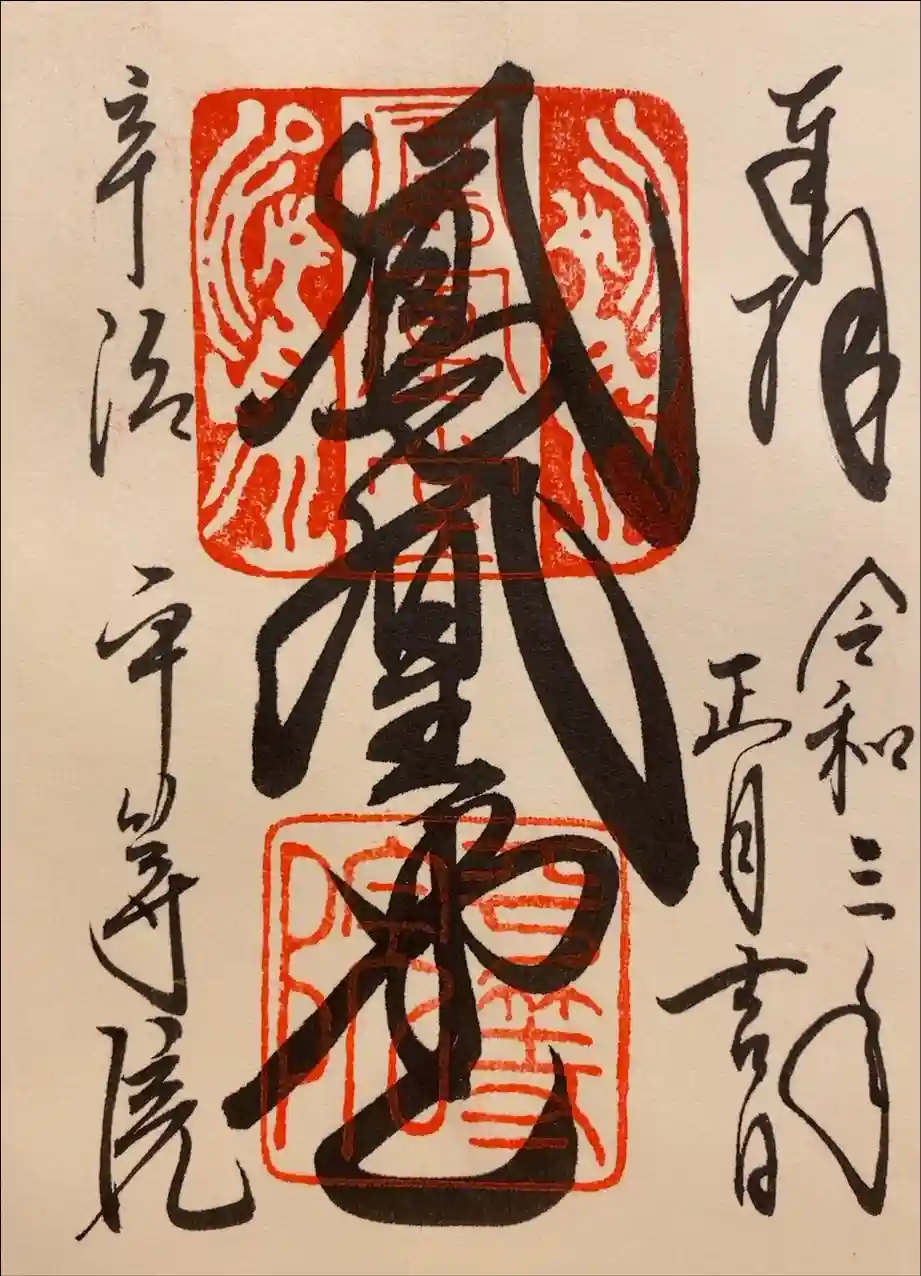 奉拝
令和三年
正月吉日
鳳凰堂
宇治 平等院
平等院